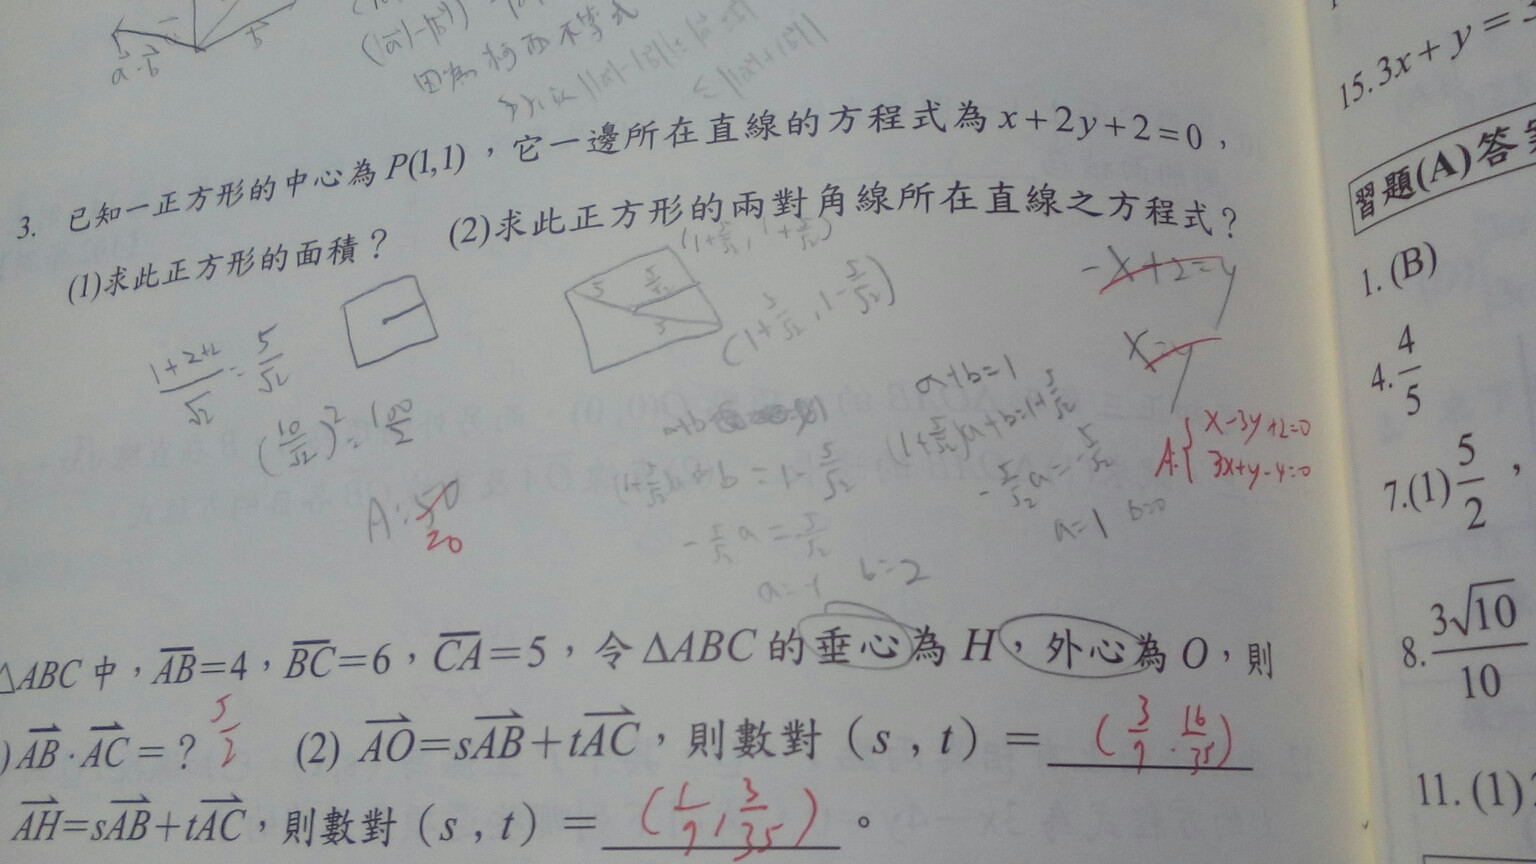 a-b
b
因為柯西不等式
3. 已知一正方形的中心為P(1,1),它一邊所在直線的方程式為x+2y+2=0,
(1)求此正方形的面積? (2)求此正方形的兩對角線所在直線之方程式?
(1+5/√2, 1+5/√2)
-x+2=y
5 5/√2
5
(1+5/√2, 1-5/√2)
x=y
(1+2+2)/√2=5/√2
(10/√2)²=100/2
A:50
20
a+b=1
(1+5/√2)a+b=1+5/√2
a+b
(1+5/√2)a+b=1-5/√2
-5/√2a=-5/√2
-5/√2a=5/√2
a=1 b=0
a=-1 b=2
A:{x-3y+2=0
3x+y-4=0
△ABC中,AB=4,BC=6,CA=5,令△ABC的垂心為H,外心為O,則
)AB·AC=? 5/2 (2) AO=sAB+tAC,則數對(s,t)= (3/7, 16/35)
AH=sAB+tAC,則數對(s,t)= (1/7, 3/35)。
15. 3x+y=
習題(A)答案
1. (B)
4. 4/5
7.(1) 5/2,
8. 3√10/10
11. (1)